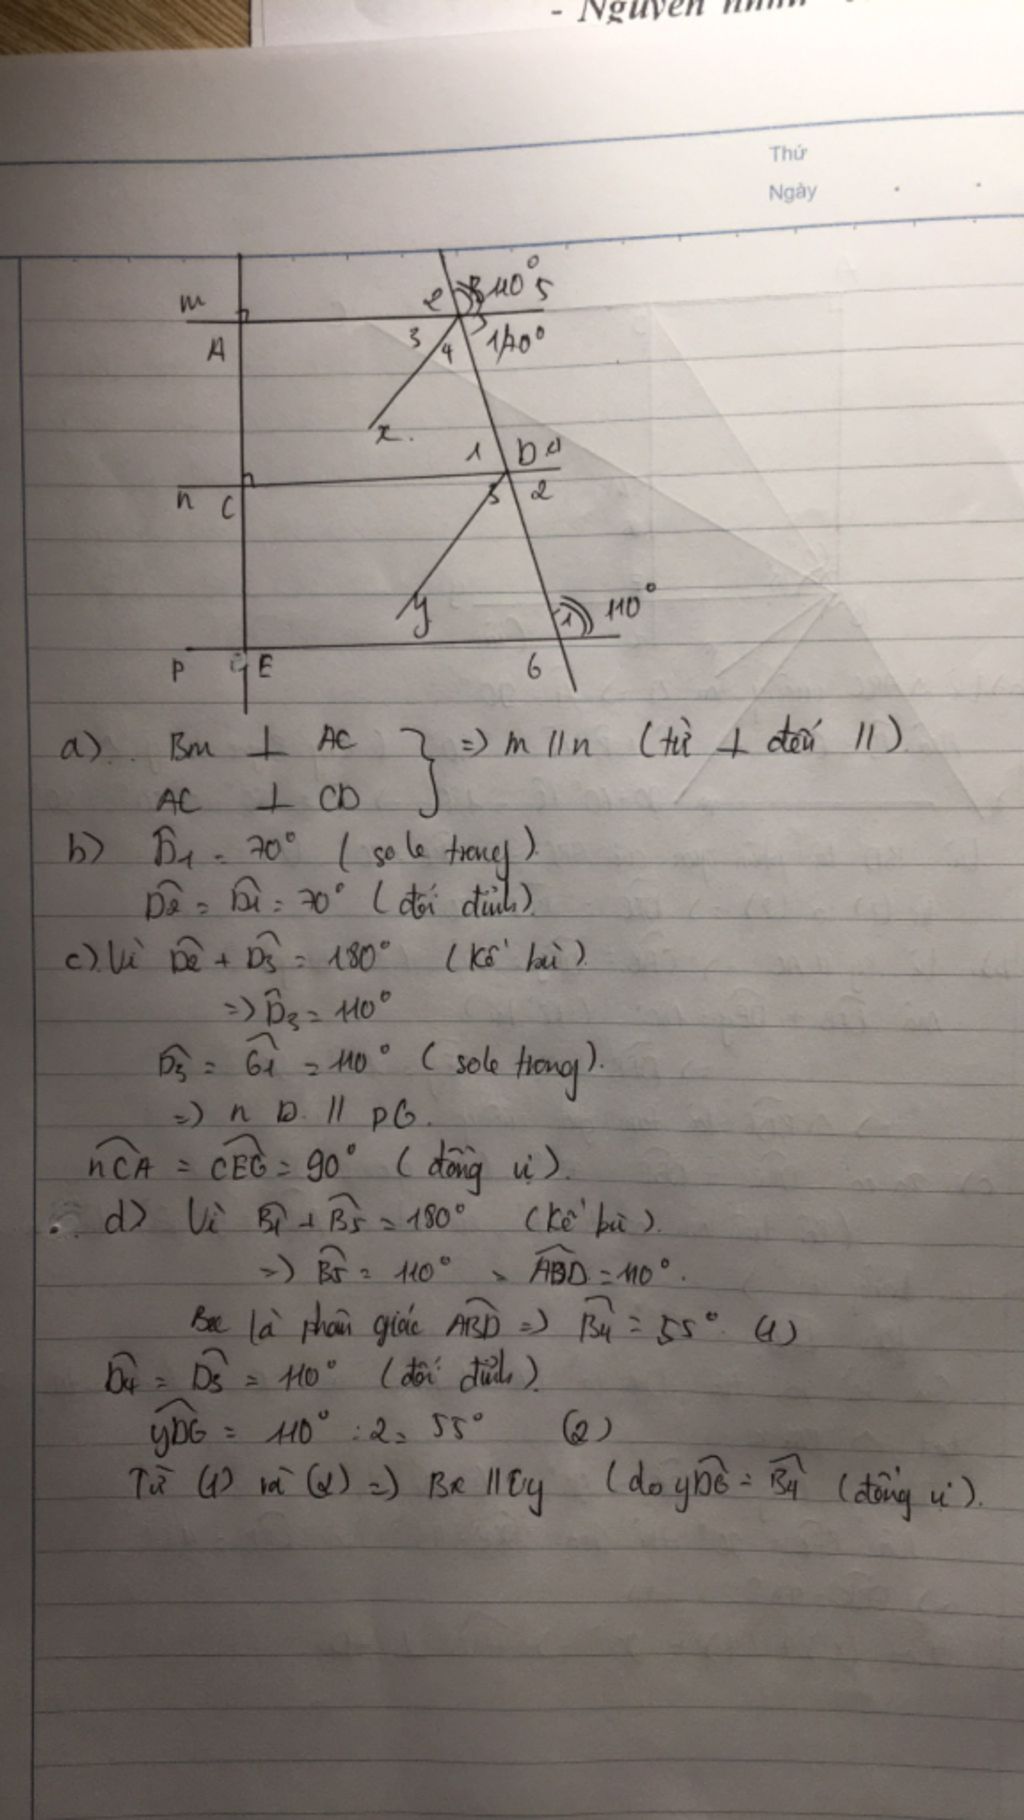 - Nguyễn
Thứ
Ngày
m
2
B 110° 5
A
3
4
1
70°
x
1
D 4
n
C
3
2
y
1
110°
P
E
G
a). Bm ⊥ AC } => m // n (từ ⊥ đến //)
AC ⊥ CD
b) D̂1 = 70° (so le trong).
D̂2 = D̂1 = 70° (đối đỉnh).
c). Vì D̂2 + D̂3 = 180° (Kề bù).
=> D̂3 = 110°
D̂3 = Ĝ1 = 110° (so le trong).
=> n D. // pG.
nCA = CEG = 90° (đồng vị).
d) Vì B̂1 + B̂5 = 180° (Kề bù).
=> B̂5 = 110° , ABD = 110°.
Bx là phân giác ABD => B̂4 = 55° (1)
D̂4 = D̂3 = 110° (đối đỉnh).
yDG = 110° : 2 = 55° (2)
Từ (1) và (2) => Bx // Dy (do yDG = B̂4 (đồng vị).